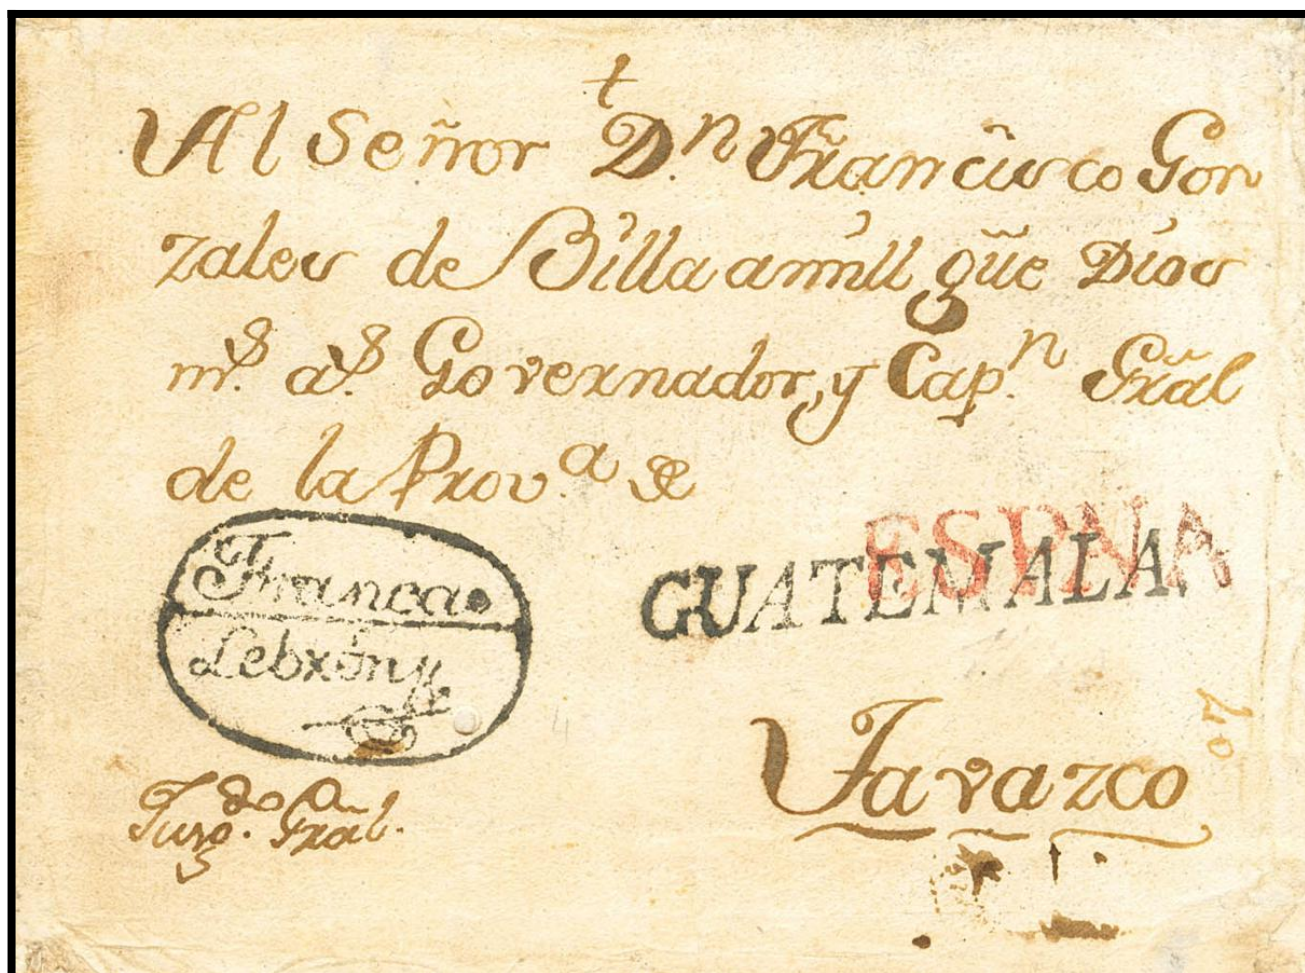 Al Señor D.n Francisco Gon
zales de Billaamill güe Dios
m.s a.s Governador, y Cap.n Gr̃al
de la Prov.a de
Franca
Lebrón
ESPNA
GUATEMALA
Tavazco
Juzg.do Gral.